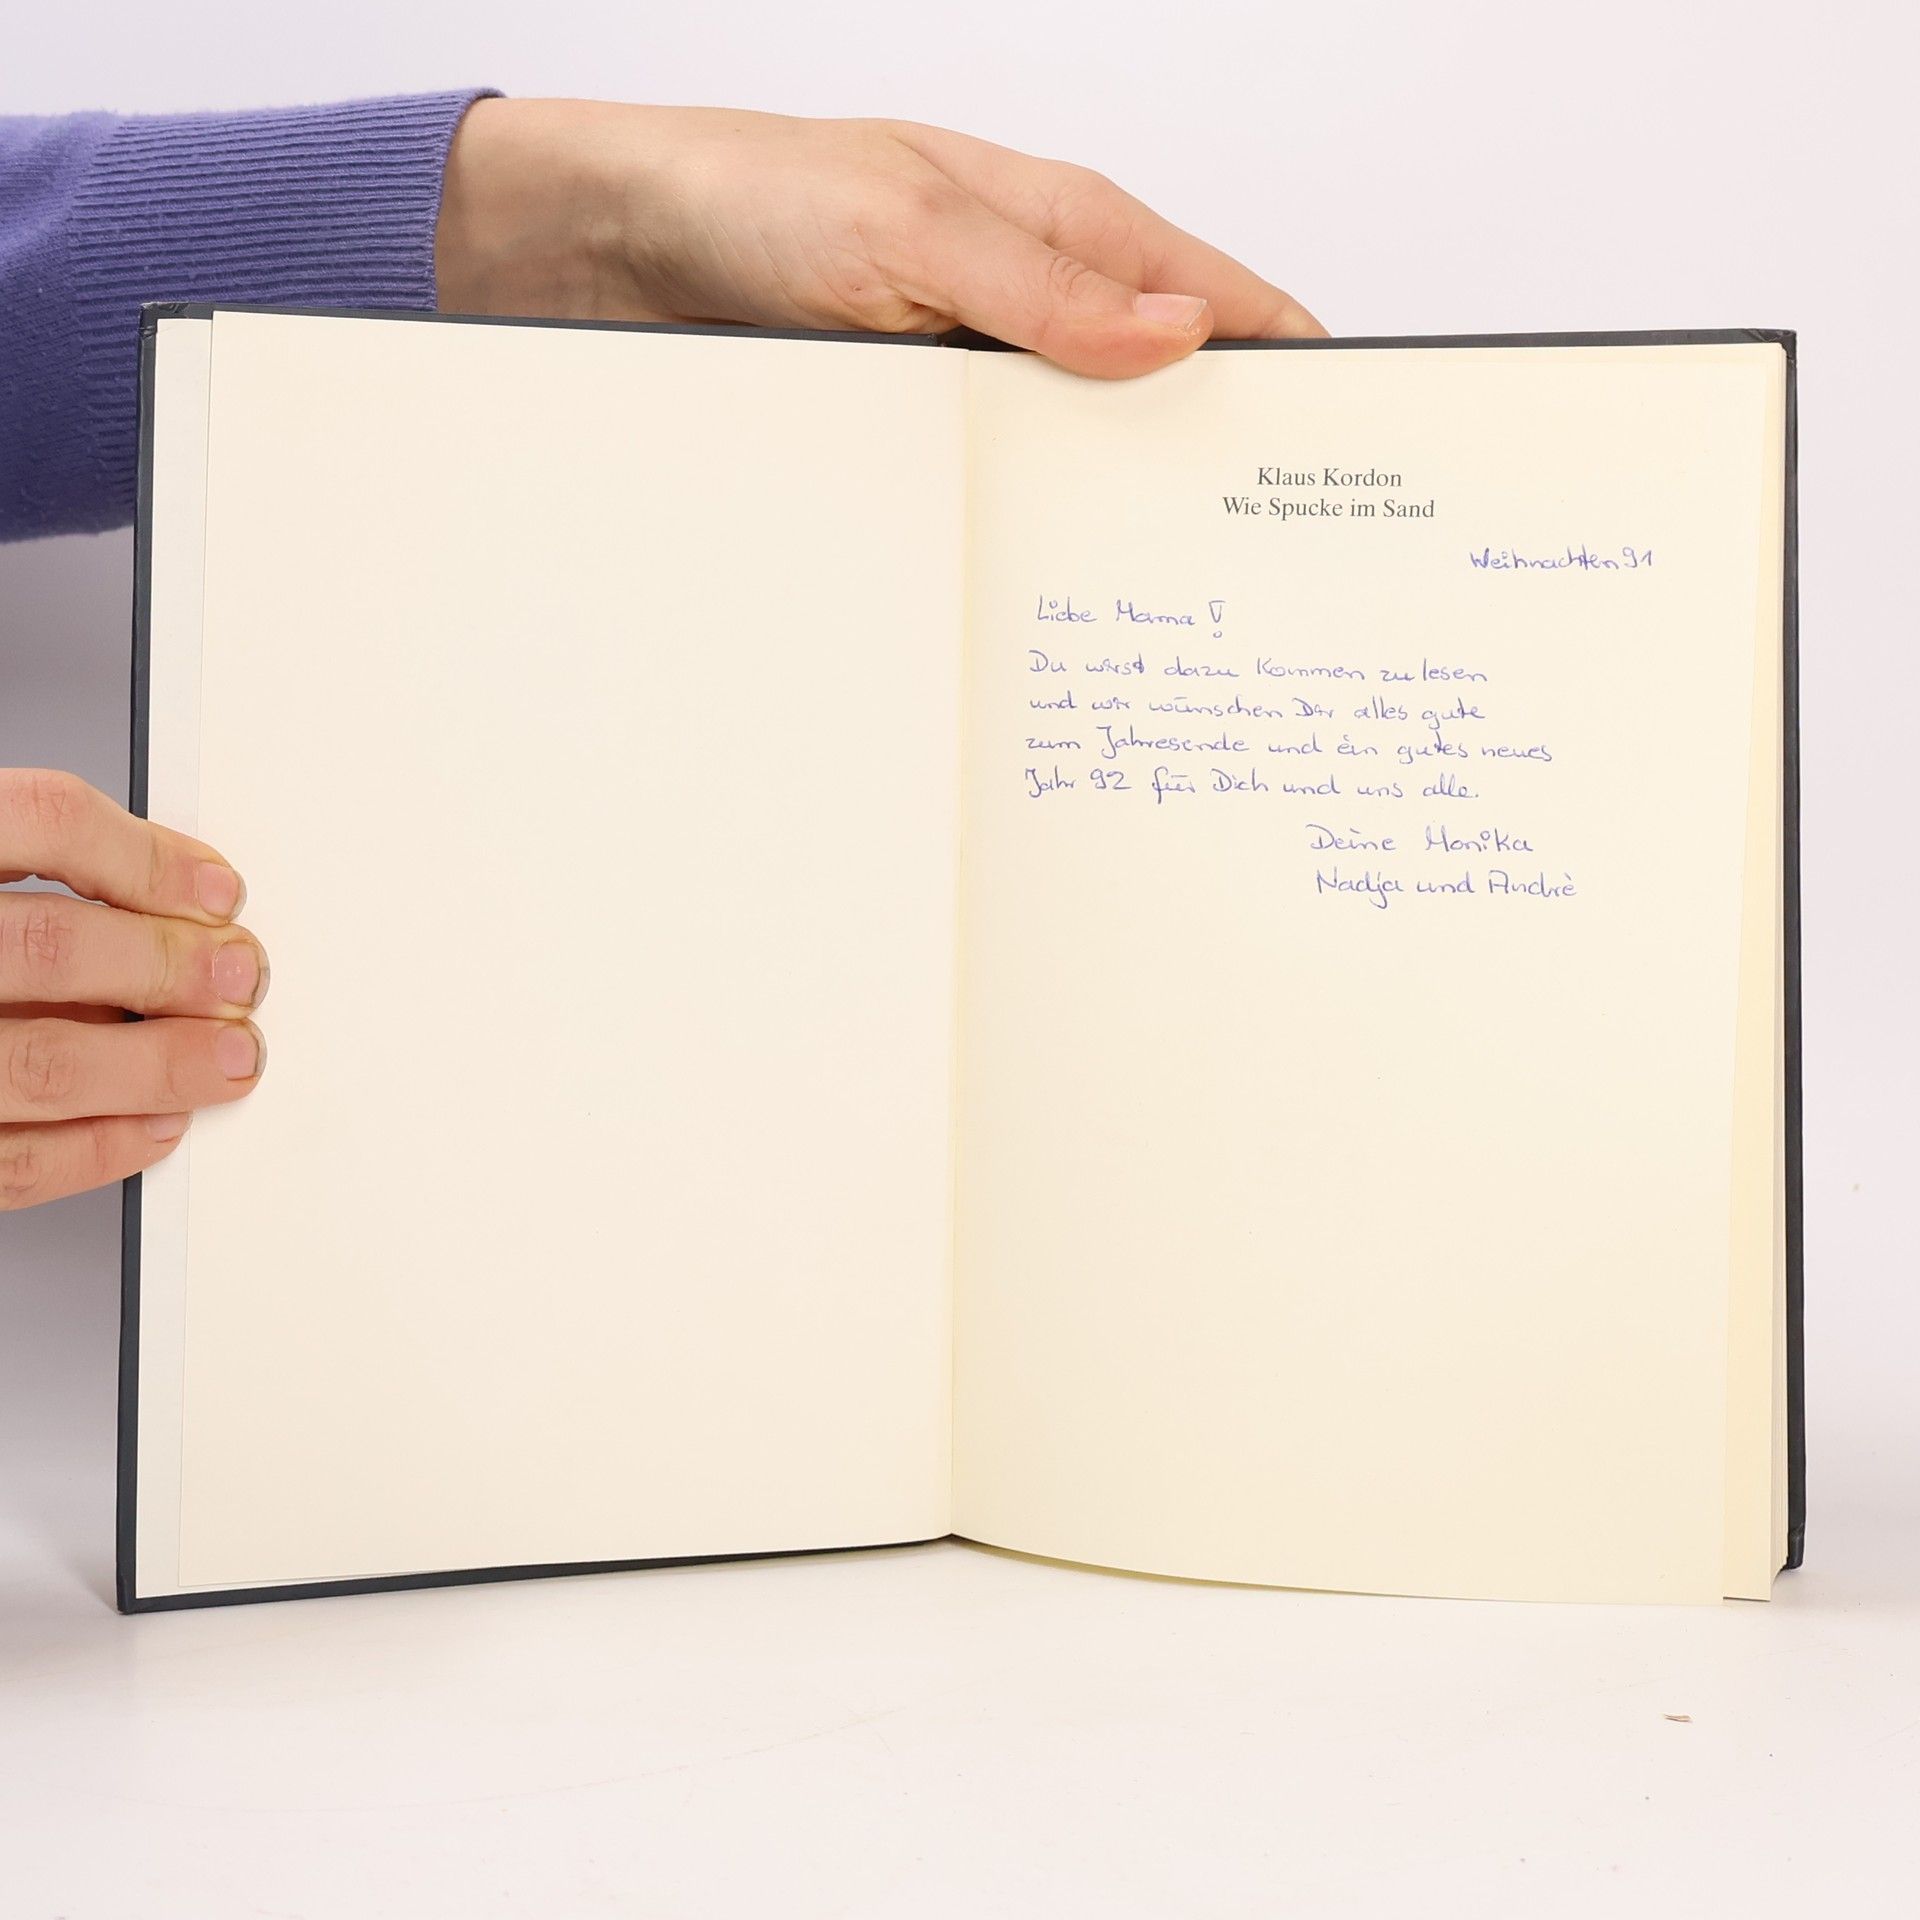 Klaus Kordon
Wie Spucke im Sand
Weihnachten 91
Liebe Mama!
Du wirst dazu kommen zu lesen
und wir wünschen Dir alles gute
zum Jahresende und ein gutes neues
Jahr 92 für Dich und uns alle.
Deine Monika
Nadja und Andrè